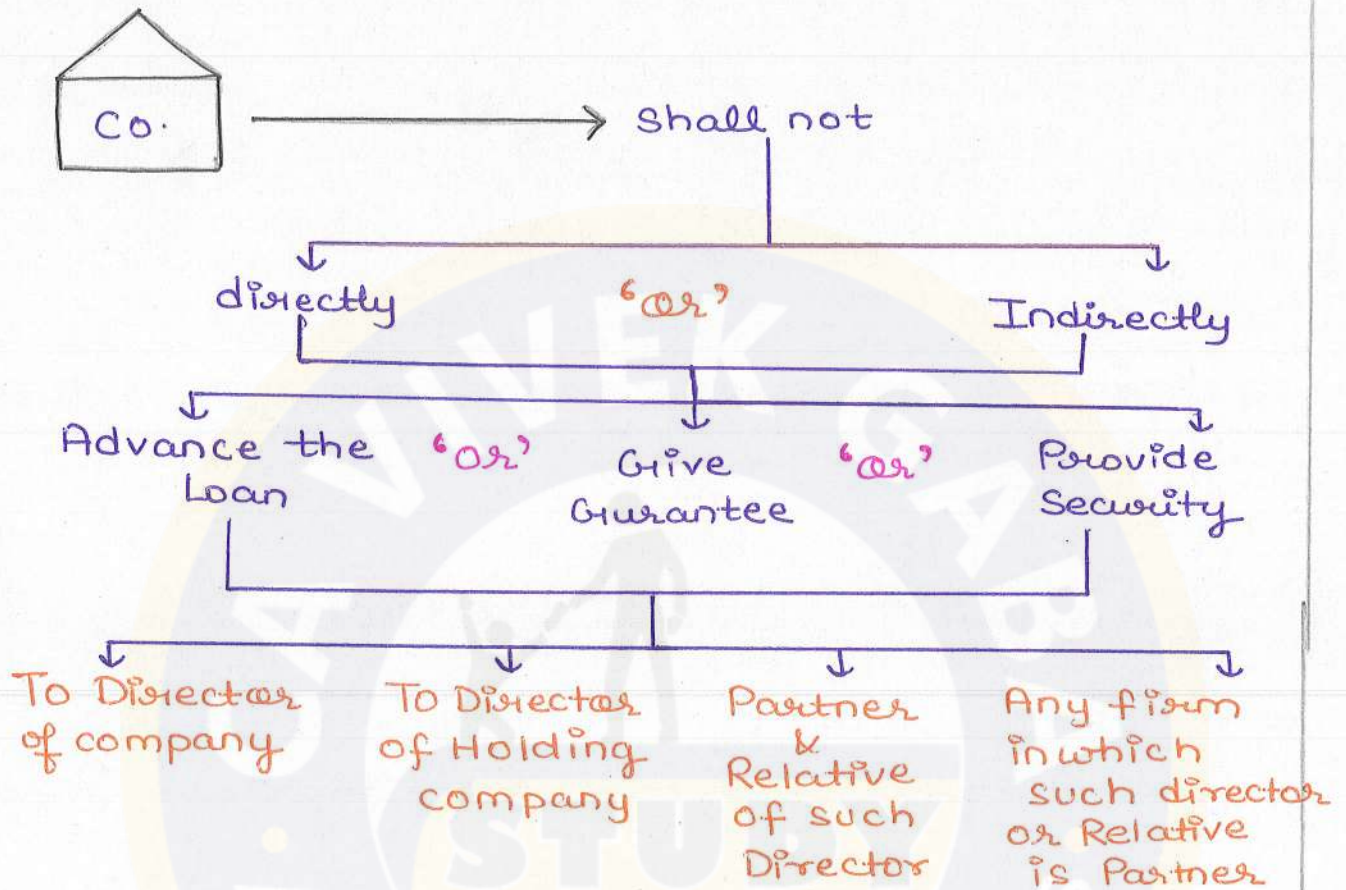 Co.
Shall not
directly
'or'
Indirectly
Advance the
Loan
'or'
Give
Gurantee
'or'
Provide
Security
To Director
of company
To Director
of Holding
company
Partner
&
Relative
of such
Director
Any firm
in which
such director
or Relative
is Partner
CA VIVEK GABA
STUDY